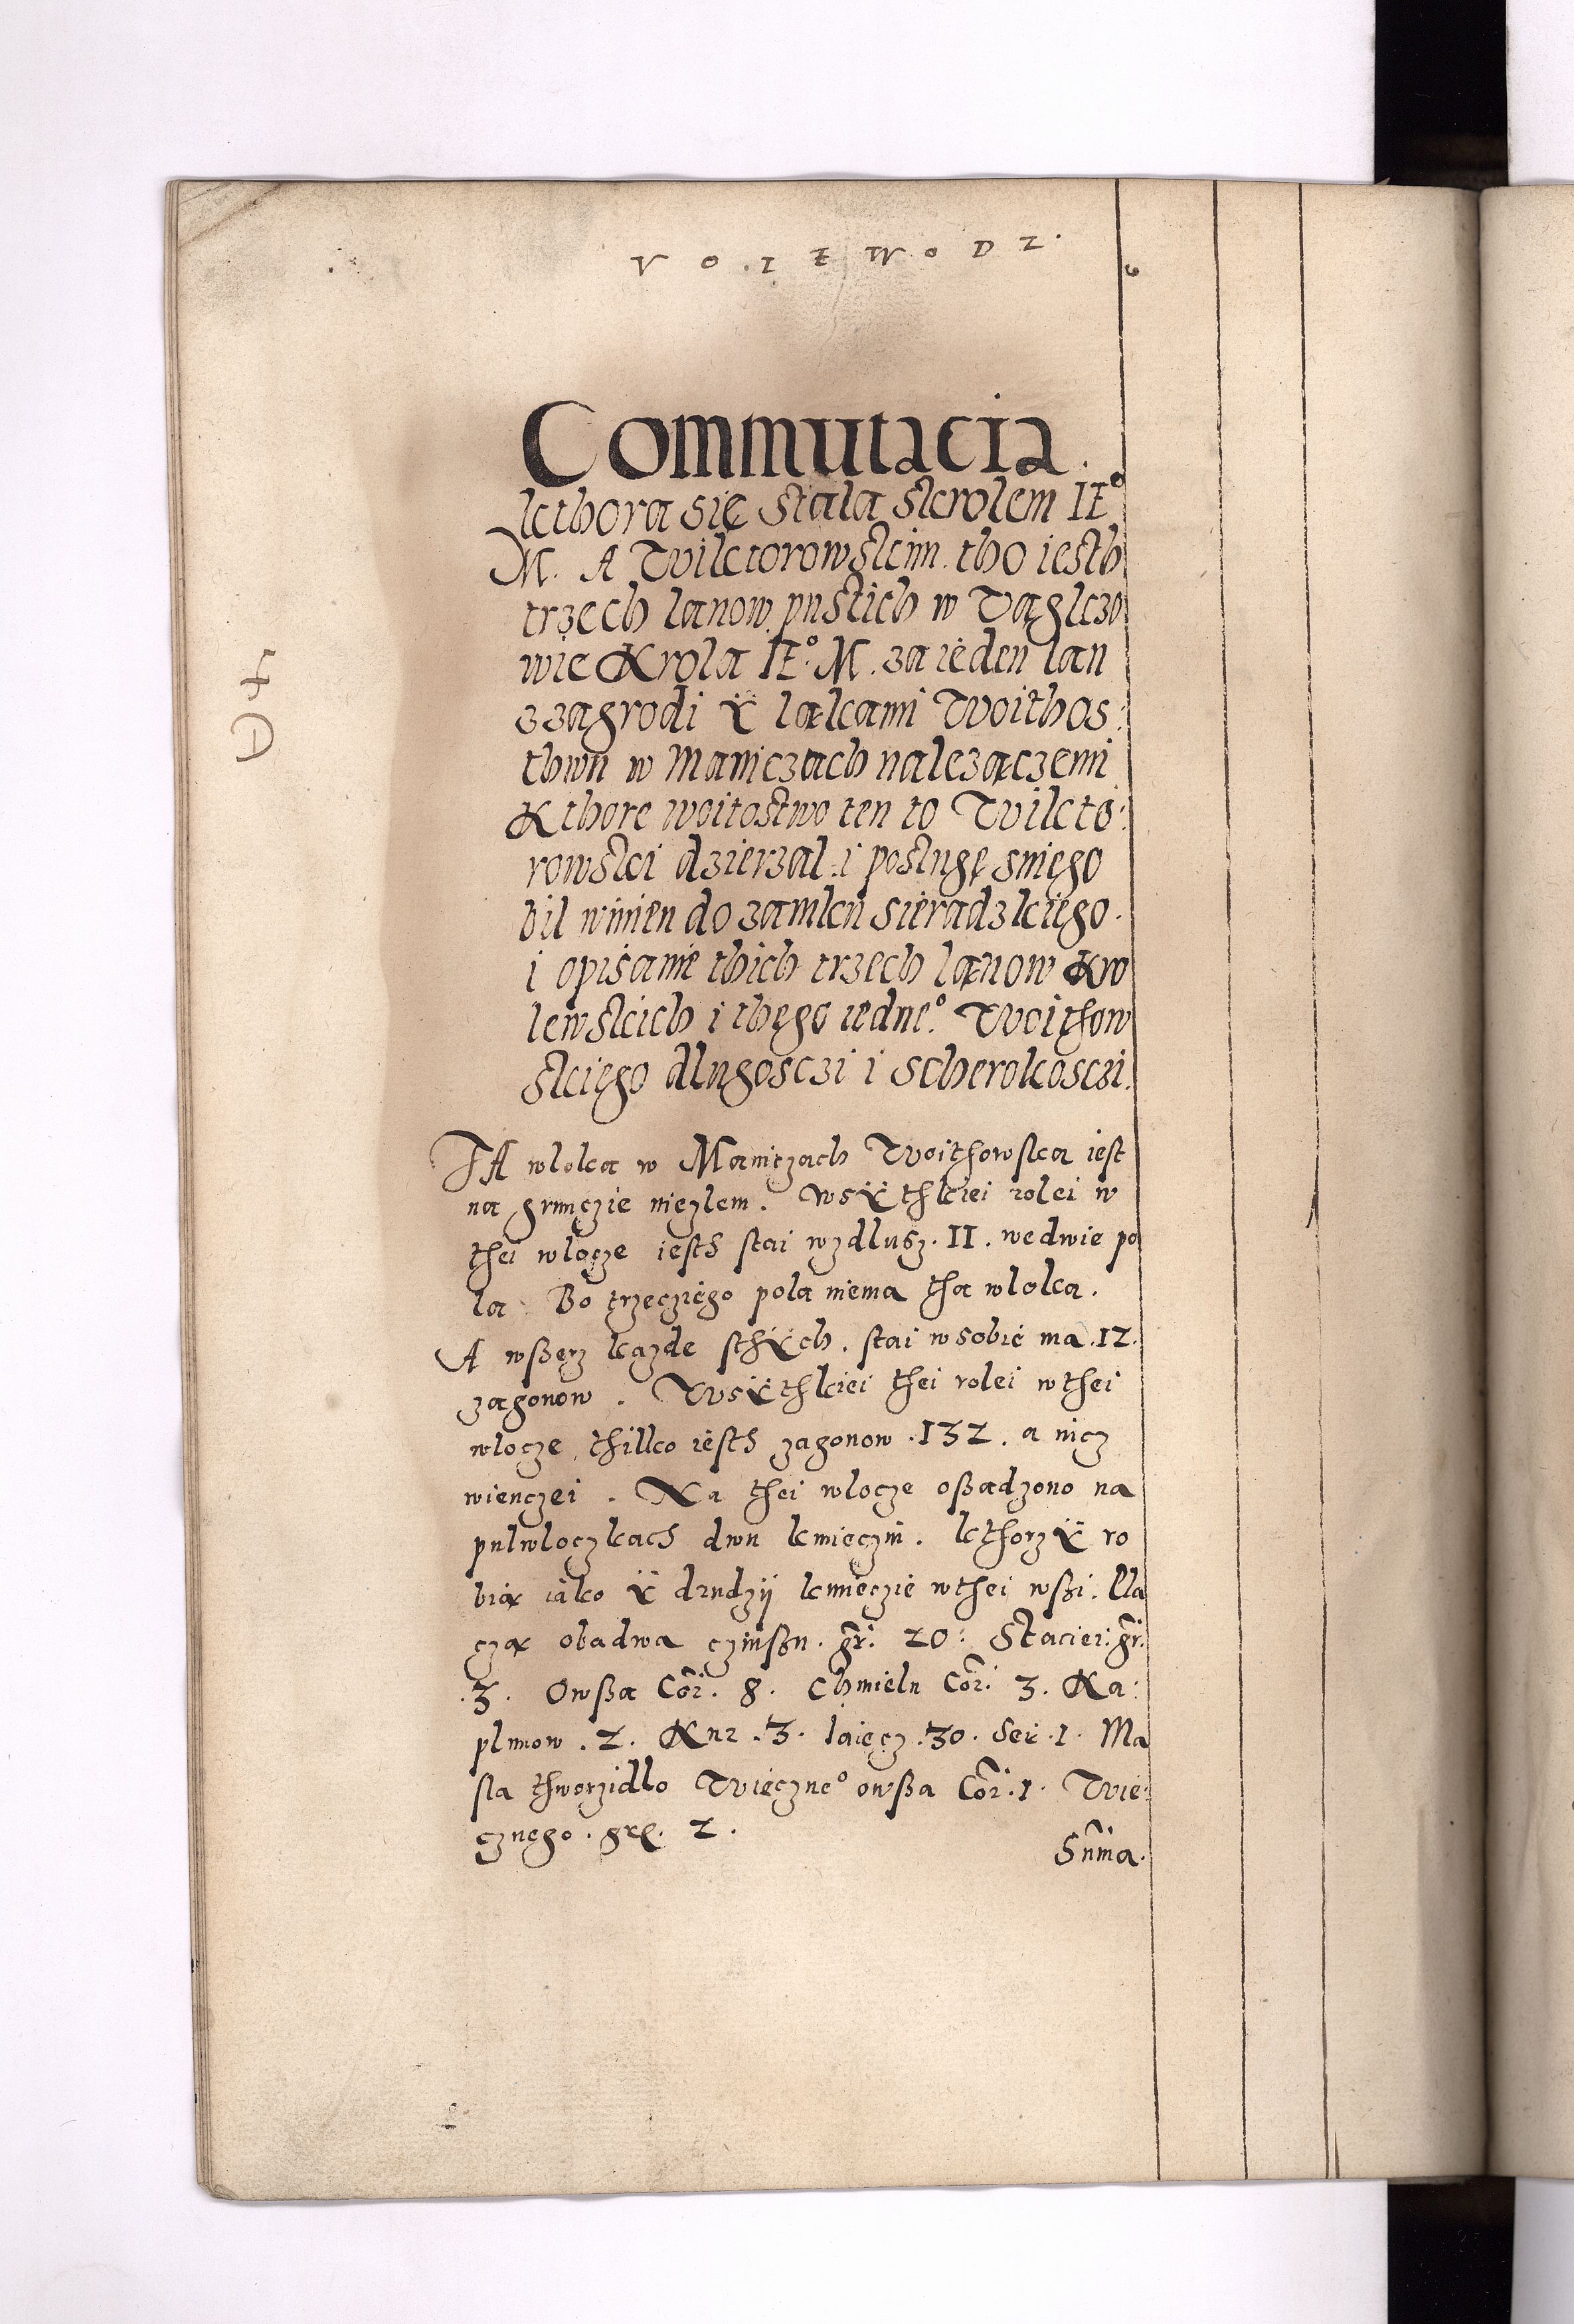 VOIEWODZ.
Commutacia.
kthora się stala skrolem IE°
M. A Wiktorowskim. tho iesth
trzech lanow pustich w Wągłczo
wie Krola IE°. M. za ieden lan
z zagrodi ÿ łąkami Woithos:
thwu w Maniczach należączemi
Kthore woitostwo ten to Wikto:
rowski dzierzal. i posługę sniego
bil winien do zamku Sieradzkiego.
i opisanie thich trzech lanow Kro
lewskich i thego iedne°. Woithow
skiego dlugosczi i scherokosczi.
TA wloka w Maniczach Woithowska iest
na grunczie niezlem. wsÿthkiei rolei w
thei wlocze iesth stai wzdlusz. II. wedwie po
la. Bo trzecziego pola niema tha wloka.
A wßerz kazde sthÿch. stai wsobie ma. 12.
zagonow. Wsÿthkiei thei rolei wthei
wlocze thilko iesth zagonow. 132. a nicz
wienczei. Na thei wlocze oßadzono na
pulwloczkach dwu kmieczu. kthorzÿ ro
bią iako ÿ drudzij kmieczie wthei wßi. Pla
czą obadwa czinßu. gr. 20: Stacier: gr.
3. Owßa Cor. 8. Chmielu Cor. 3. Ka:
plunow. 2. Kur. 3. Iaiecz. 30. Ser. 1. Ma
sla thworzidlo Wieczne° owßa Cor. 1. Wie:
cznego. gr. 2.
Suma.